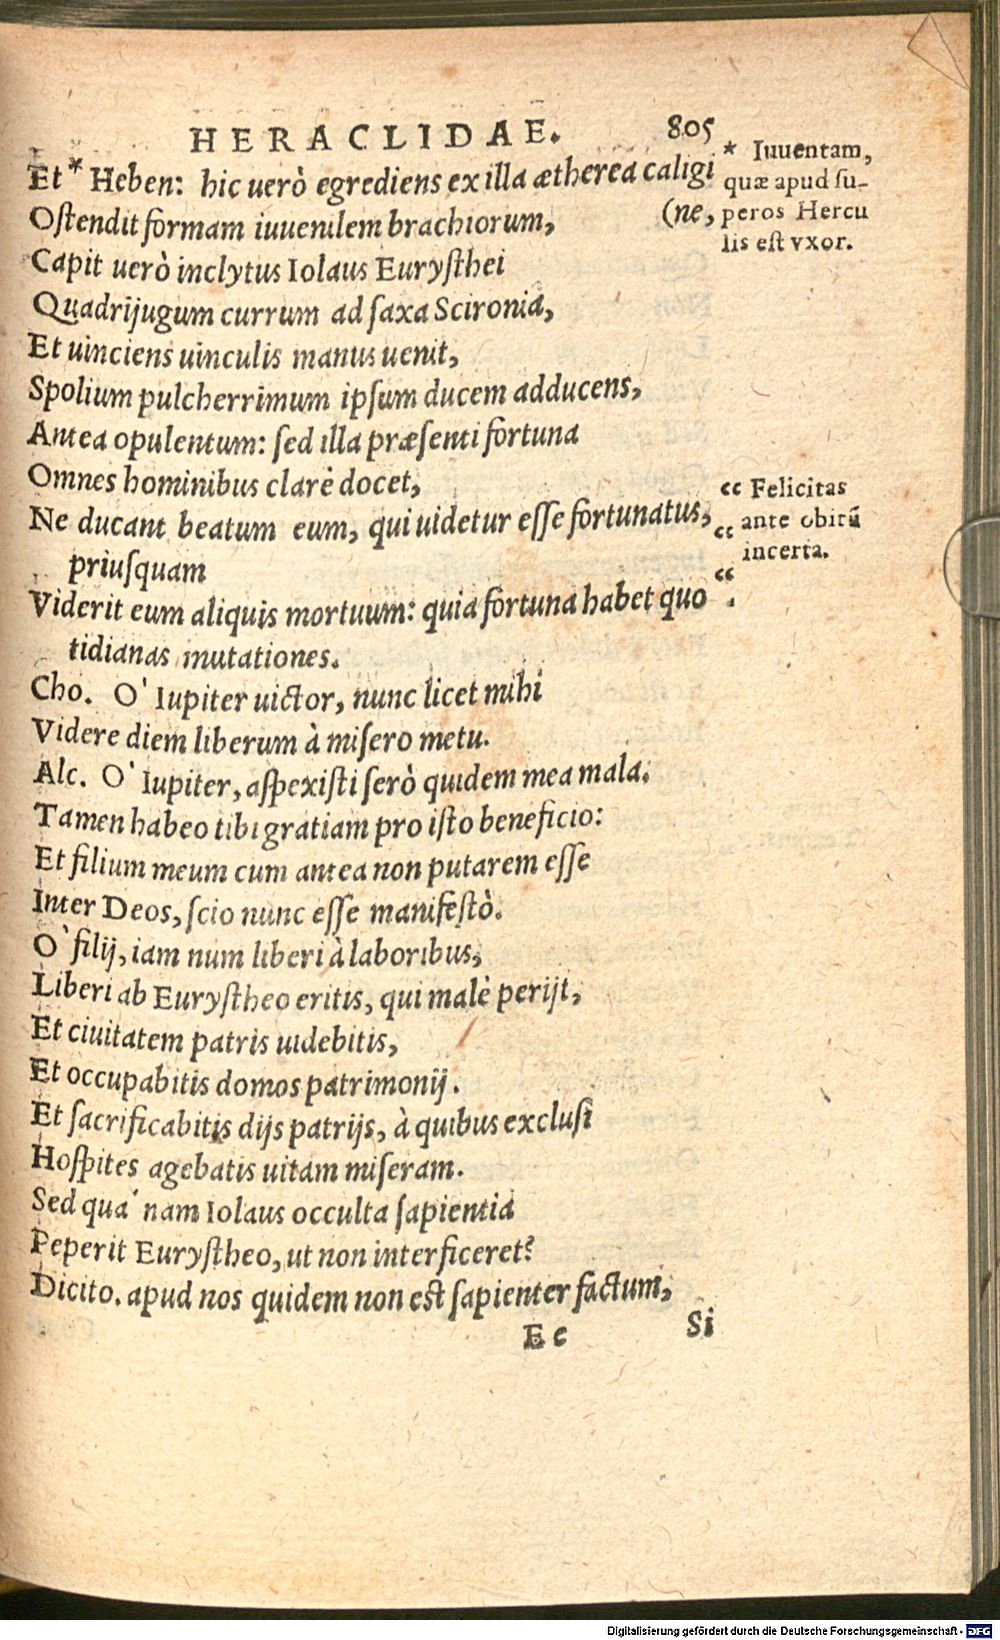 HERACLIDAE. 805
Et * Heben: hic uerò egrediens ex illa ætherea caligi
(ne,
Ostendit formam iuuenilem brachiorum,
Capit uerò inclytus Iolaus Eurysthei
Quadrijugum currum ad saxa Scironia,
Et uinciens uinculis manus uenit,
Spolium pulcherrimum ipsum ducem adducens,
Antea opulentum: sed illa præsenti fortuna
Omnes hominibus clarè docet,
Ne ducant beatum eum, qui uidetur esse fortunatus,
priusquam
Viderit eum aliquis mortuum: quia fortuna habet quo
tidianas mutationes.
Cho. O' Iupiter uictor, nunc licet mihi
Videre diem liberum à misero metu.
Alc. O' Iupiter, aspexisti serò quidem mea mala.
Tamen habeo tibi gratiam pro isto beneficio:
Et filium meum cum antea non putarem esse
Inter Deos, scio nunc esse manifestò.
O' filij, iam num liberi à laboribus,
Liberi ab Eurystheo eritis, qui malè perijt,
Et ciuitatem patris uidebitis,
Et occupabitis domos patrimonij.
Et sacrificabitis dijs patrijs, à quibus exclusi
Hospites agebatis uitam miseram.
Sed qua' nam Iolaus occulta sapientia
Peperit Eurystheo, ut non interficeret?
Dicito. apud nos quidem non est sapienter factum,
Ee Si
* Iuuentam,
quæ apud su-
peros Hercu
lis est vxor.
“ Felicitas
“ ante obitũ
incerta.
“
Digitalisierung gefördert durch die Deutsche Forschungsgemeinschaft - DFG